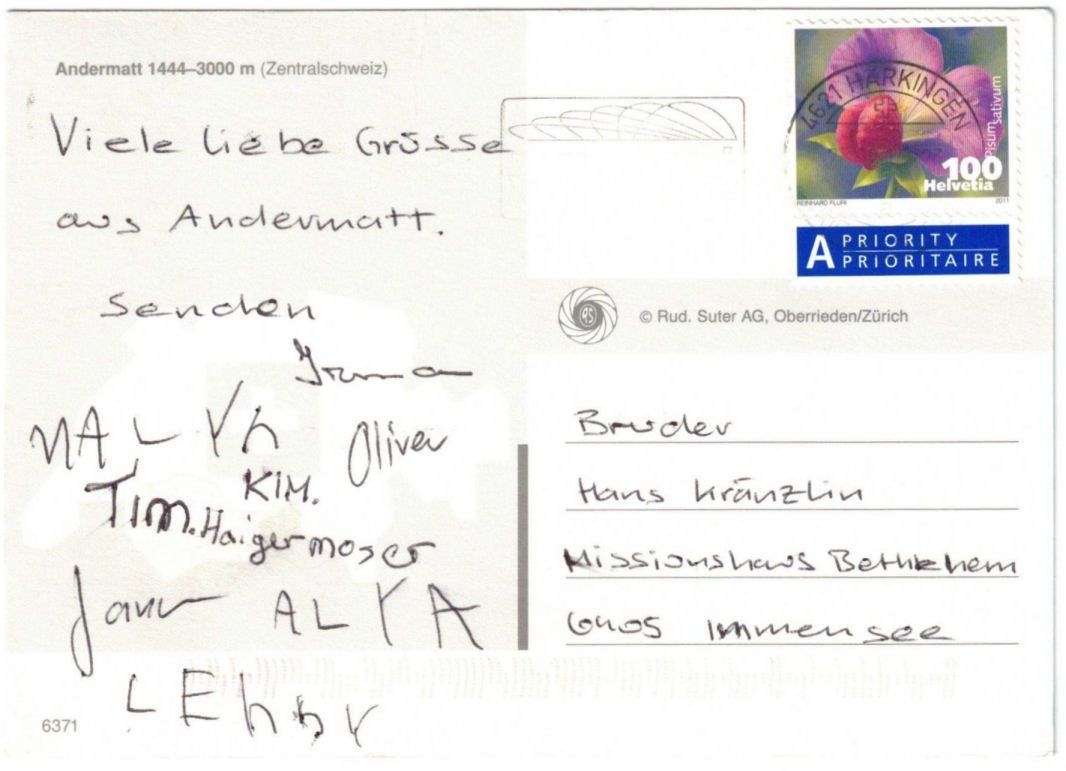 Andermatt 1444–3000 m (Zentralschweiz)
Viele liebe Grüsse
aus Andermatt.
senden
Irma
Oliver
KIM.
TIM. Haigermoser
ALYA
LENNY
6371
4621 HÄRKINGEN
Pisum sativum
100
Helvetia
REINHARD FLURI
2011
A PRIORITY
PRIORITAIRE
© Rud. Suter AG, Oberrieden/Zürich
Bruder
Hans Kränzlin
Missionshaus Bethlehem
6405 Immensee